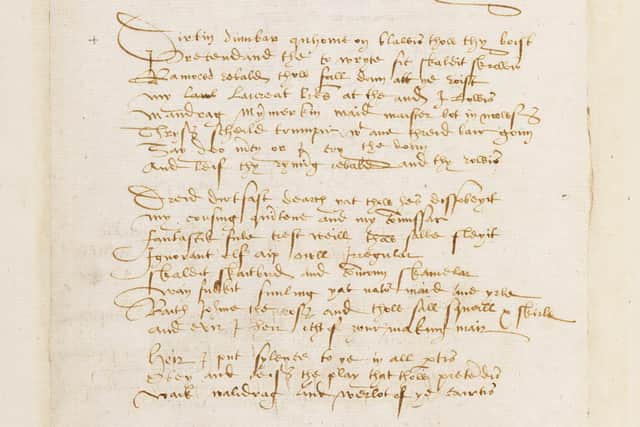 Dirtin dumbar quhome on blawis thow thy boist
Pretendand the to wryte sic skaldit skrowis
Ramowd rebald thow fall doun att ye roist
my laureat lettres at the and I lowis
mandrag mymmerkin maid maister bot in mowis
Thrys scheild trumpir wt ane threid bair goun
Say deo mercy or I cry the doun
And leif thy ryming rebald and thy rowis

Dreid dirtfast dearch yat thow hes dissobeyit
my cousing quintene and my commissar
fantastik fule trest weill thow salbe fleyit
Ignorant elf aip owll irregular
skaldit skaitbird and commoun skamelar
wan fukkit funling yat natour maid ane yrle
Baith Johine the ross and thow sall squeill & skirle
and evir I heir ocht of your making mair

Heir I put sylence to ye in all pairtis
Obey and ceiss the play that thow pretendis
waik walidrag and werlot of ye cairtis